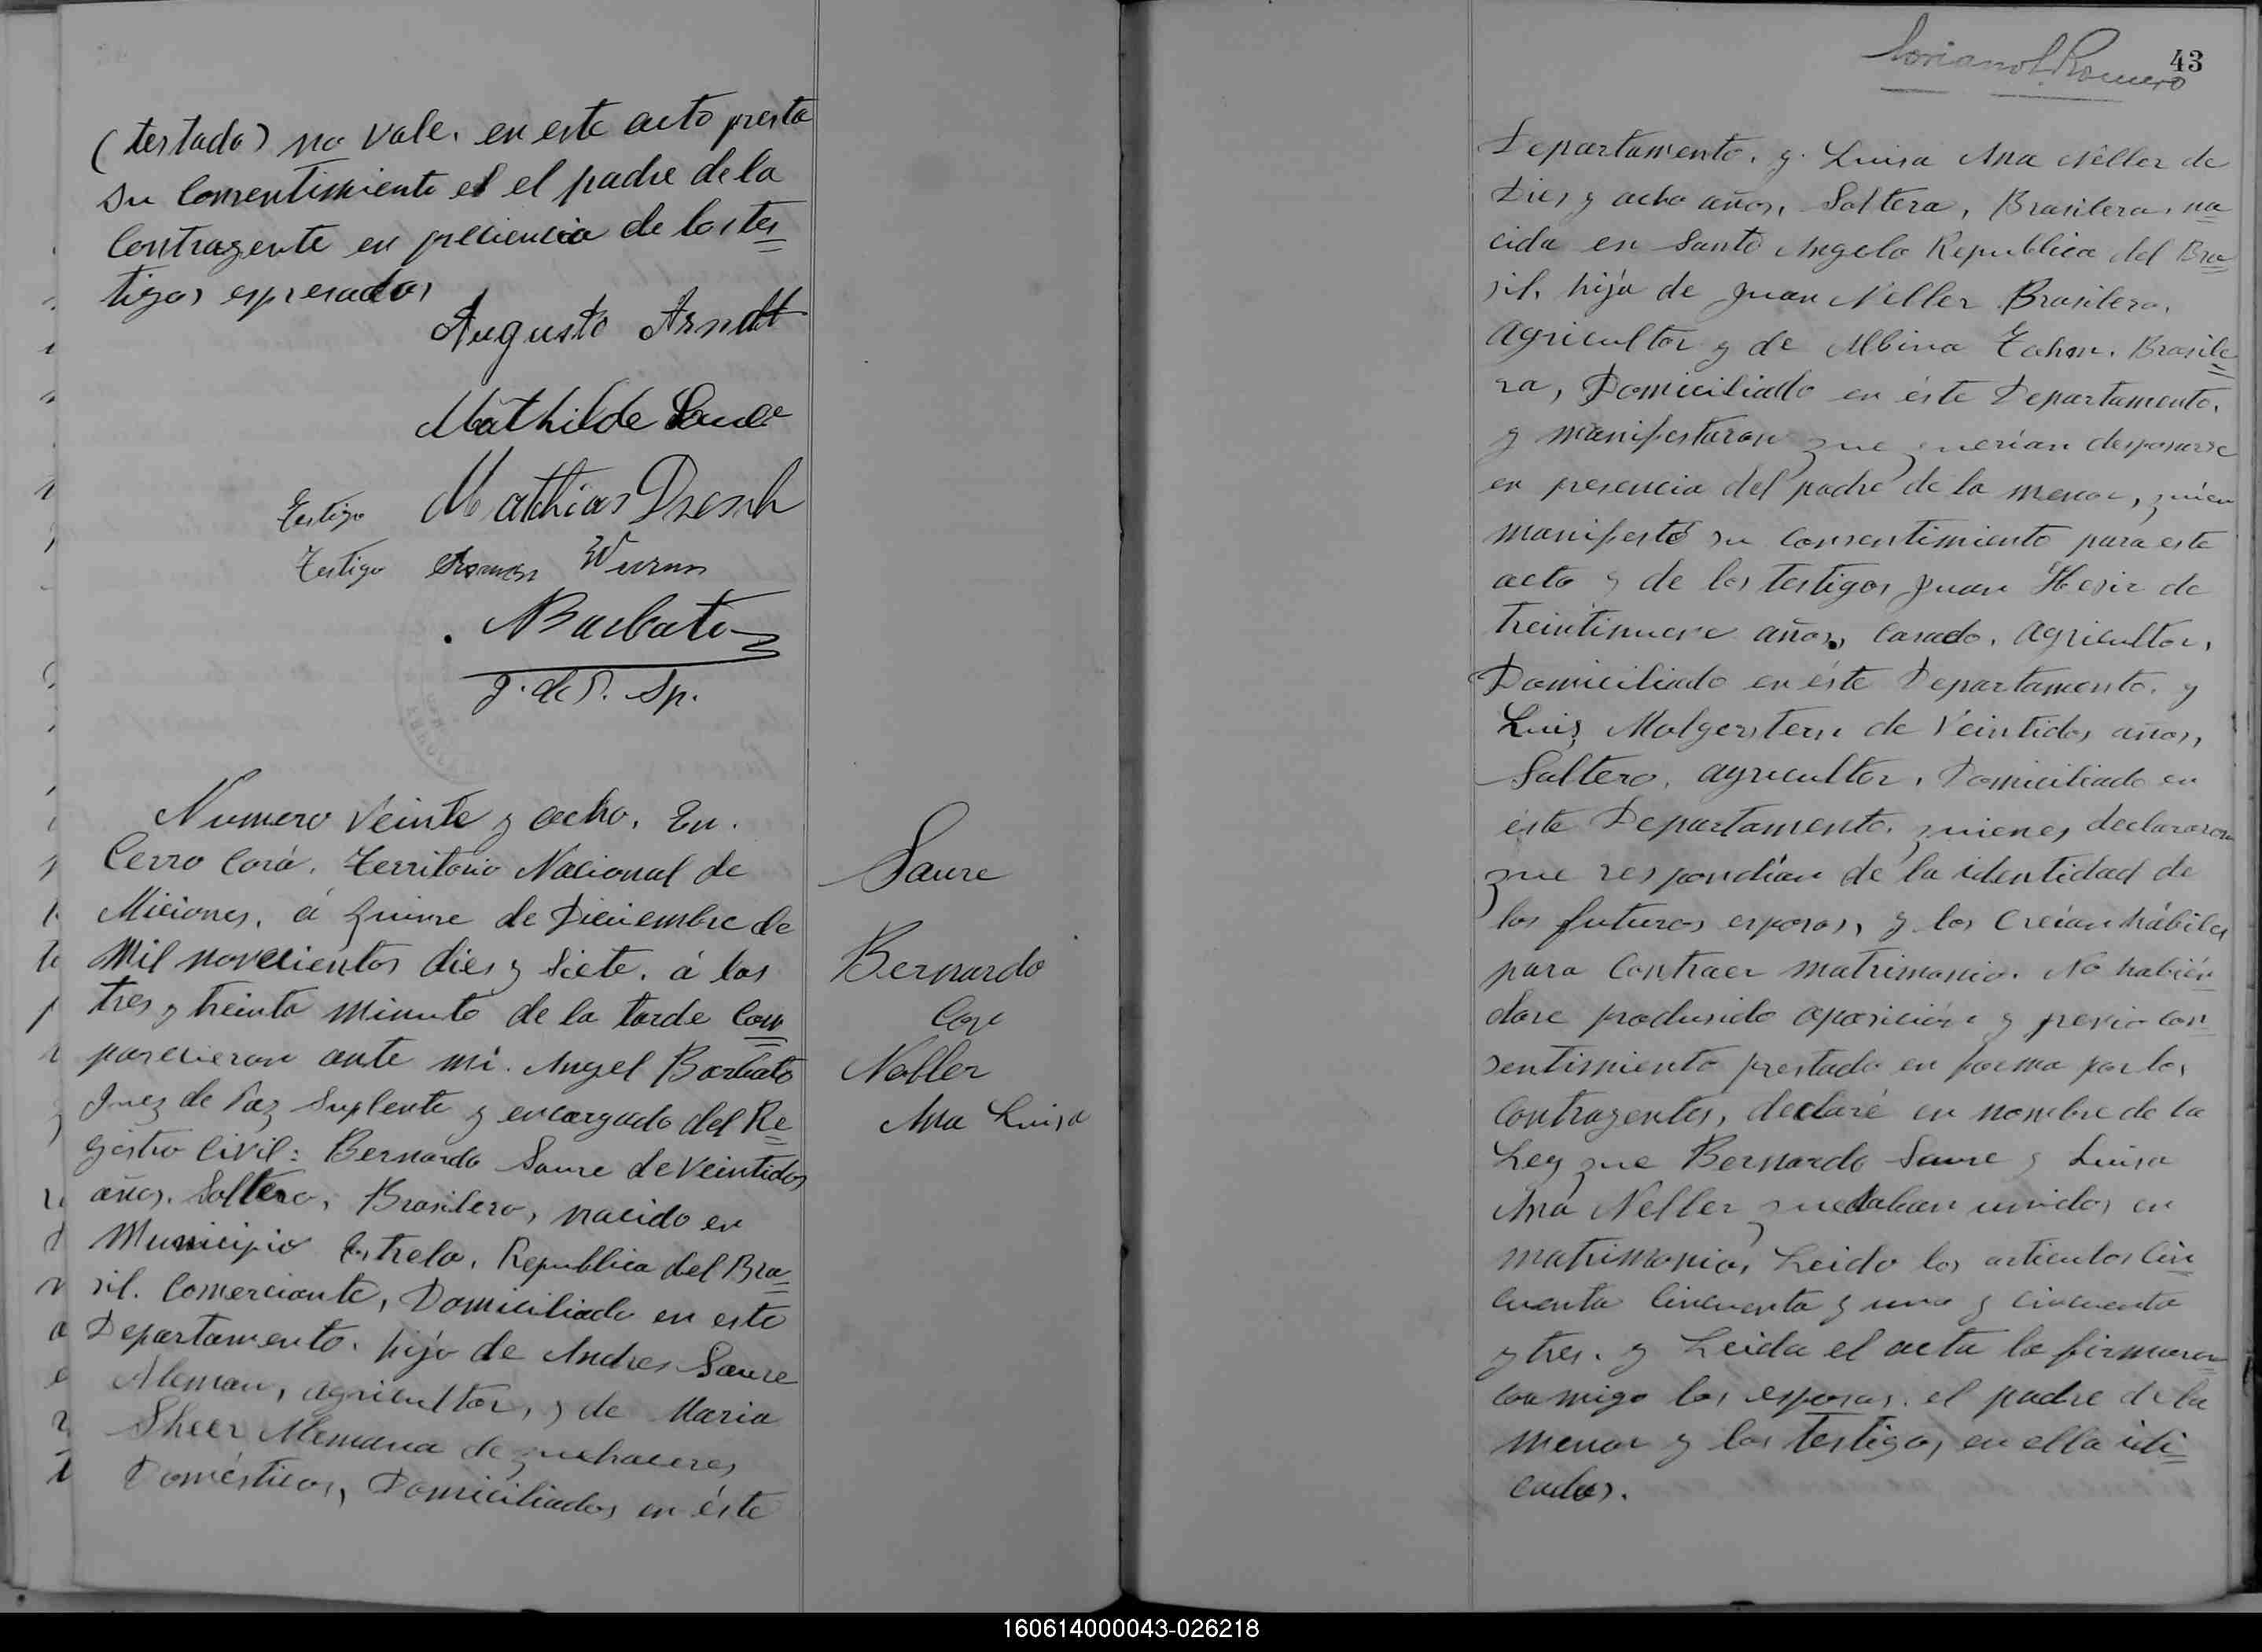 (testado) no vale. en este acto presta
su Consentimiento el el padre de la
Contrayente en preciencia de los tes
tigos espresados
Augusto Arndt
Mathilde
Testigo Matthias Dresch
Testigo Roman Wurm
ABarbato
J. de P. Sp.
Numero Veinte y ocho. En.
Cerro Corá. Territorio Nacional de
Miciones. á quinse de Diciembre de
Mil novecientos dies y siete. á las
tres y treinta minuto de la tarde Com
parecieron ante mi. Angel Barbato
Juez de Paz Suplente y encargado del Re
gistro Civil: Bernardo Saure de Veintidos
años. Soltero, Brasilero, nacido en
Municipio Estrela. Republica del Bra
sil. Comerciante, Domiciliado en este
Departamento. hijo de Andres Saure
Aleman, agricultor, y de Maria
Sheer Alemana de quehaceres
Domésticos, Domiciliados en éste
Saure
Bernardo
Con
Neller
Ana Luisa
Soriano L. Romero
43
Departamento. y. Luisa Ana Neller de
Dies y acho años, Soltera, Brasilera, na
cida en Santo Angelo Republica del Bra
sil, hija de Juan Neller Brasilero.
agricultor y de Albina Brasile
ra, Domiciliado en éste Departamento.
y manifestaron que querian desposarse
en presencia del padre de la menor, quien
manifestó su consentimiento para este
acto y de los testigos Juan de
treintinueve años, casado, agricultor,
Domiciliado en éste Departamento. y
Luis Molgerstern de Veintidos años,
Soltero, agricultor, Domiciliado en
éste Departamento. quienes declararon
que respondían de la identidad de
los futuros esposos, y los creían hábiles
para Contraer matrimonio. No habién
dose produsido oposición y previo con
sentimiento prestado en forma por los
contrayentes, declaré en nombre de la
Ley que Bernardo Saure y Luisa
Ana Neller quedaban unidos en
matrimonio, Leido los articulos Cin
cuenta Cincuenta y uno y cincuenta
y tres. y Leida el acta la firmaron
conmigo los esposos. el padre de la
menor y los testigos en ella indi
cados.
160614000043-026218